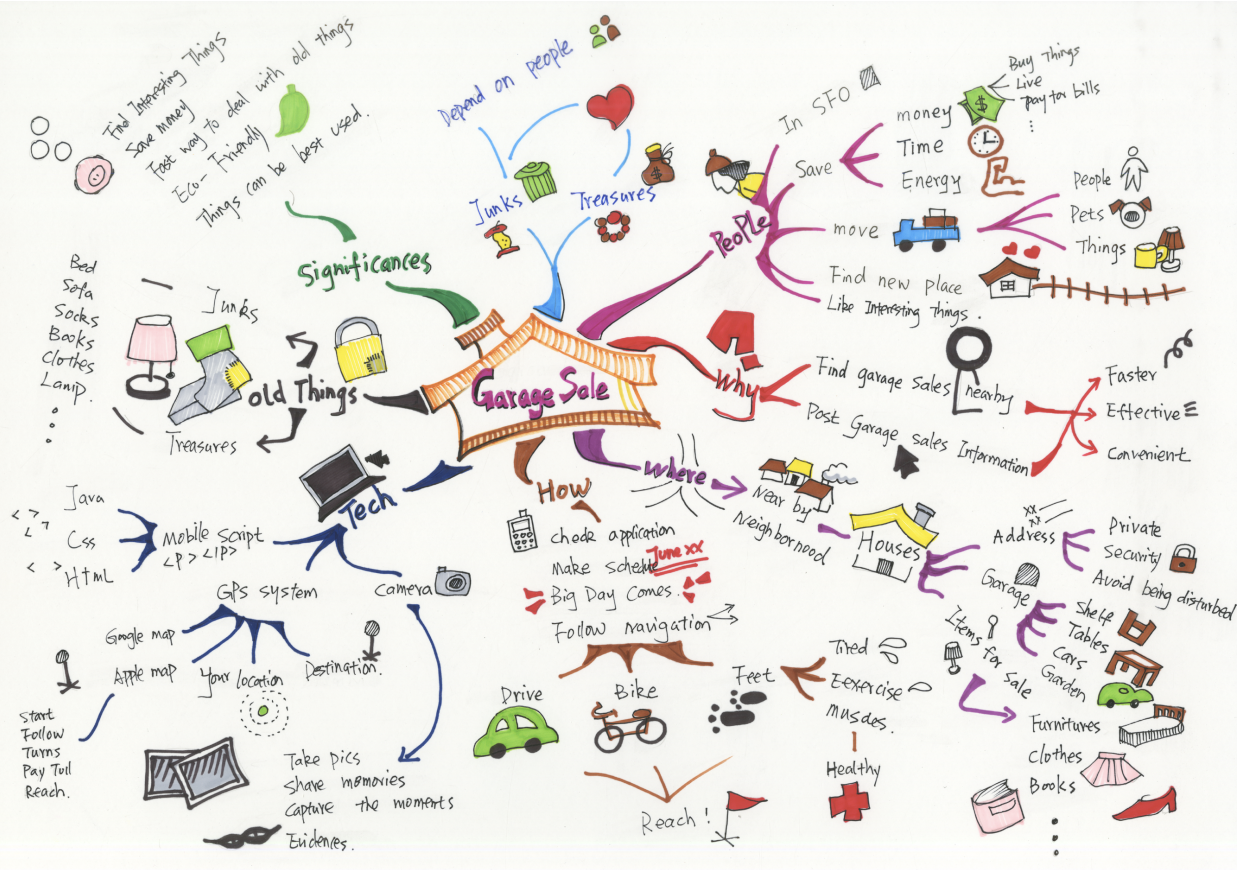 Garage Sale
Significances
Find Interesting Things
Save money
Fast way to deal with old things
Eco-Friendly
Things can be best used.
Depend on people
Junks
Treasures
People
In SFO
Save
money
Buy Things
Live
pay for bills
⋮
Time
Energy
move
People
Pets
Things
Find new place
Like Interesting things.
Why
Find garage sales nearby
Post Garage sales Information
Faster
Effective
Convenient
where
Near by
Neighborhood
Houses
Address
xx
xx
Private
Security
Avoid being disturbed
Garage
Shelf
Tables
Cars
Garden
Items for Sale
Furnitures
Clothes
Books
⋮
How
check application
Make schedule
June xx
Big Day Comes.
Follow navigation
Drive
Bike
Feet
Tired
Eexercise
muscles.
Healthy
Reach!
Tech
Mobile Script
<P> <IP>
Java
Css
Html
< >
< >
< >
GPS system
Google map
Apple map
Your location
Destination.
Start
Follow
Turns
Pay Toll
Reach.
Camera
Take pics
share memories
capture the moments
Evidences.
old Things
Junks
Treasures
Bed
Sofa
Socks
Books
Clothes
Lamp.
⋮